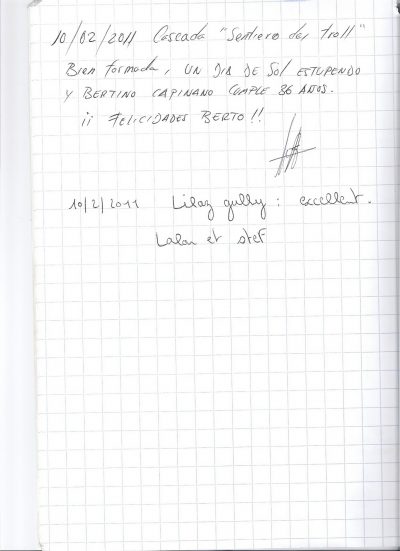 10/02/2011 Cascada "Sentiero dei troll"
Bien formada, UN DIA DE SOL ESTUPENDO
Y BERTINO CAPINANO CUMPLE 86 AÑOS.
¡¡ FELICIDADES BERTO!!
10/2/2011 Lilaz gully : excellent.
Lalou et stef